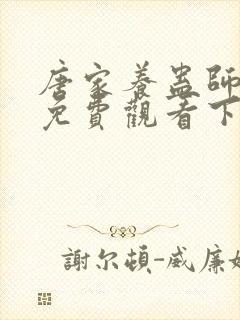 唐家養蠱師
免費觀看下
謝尔頓-威廉